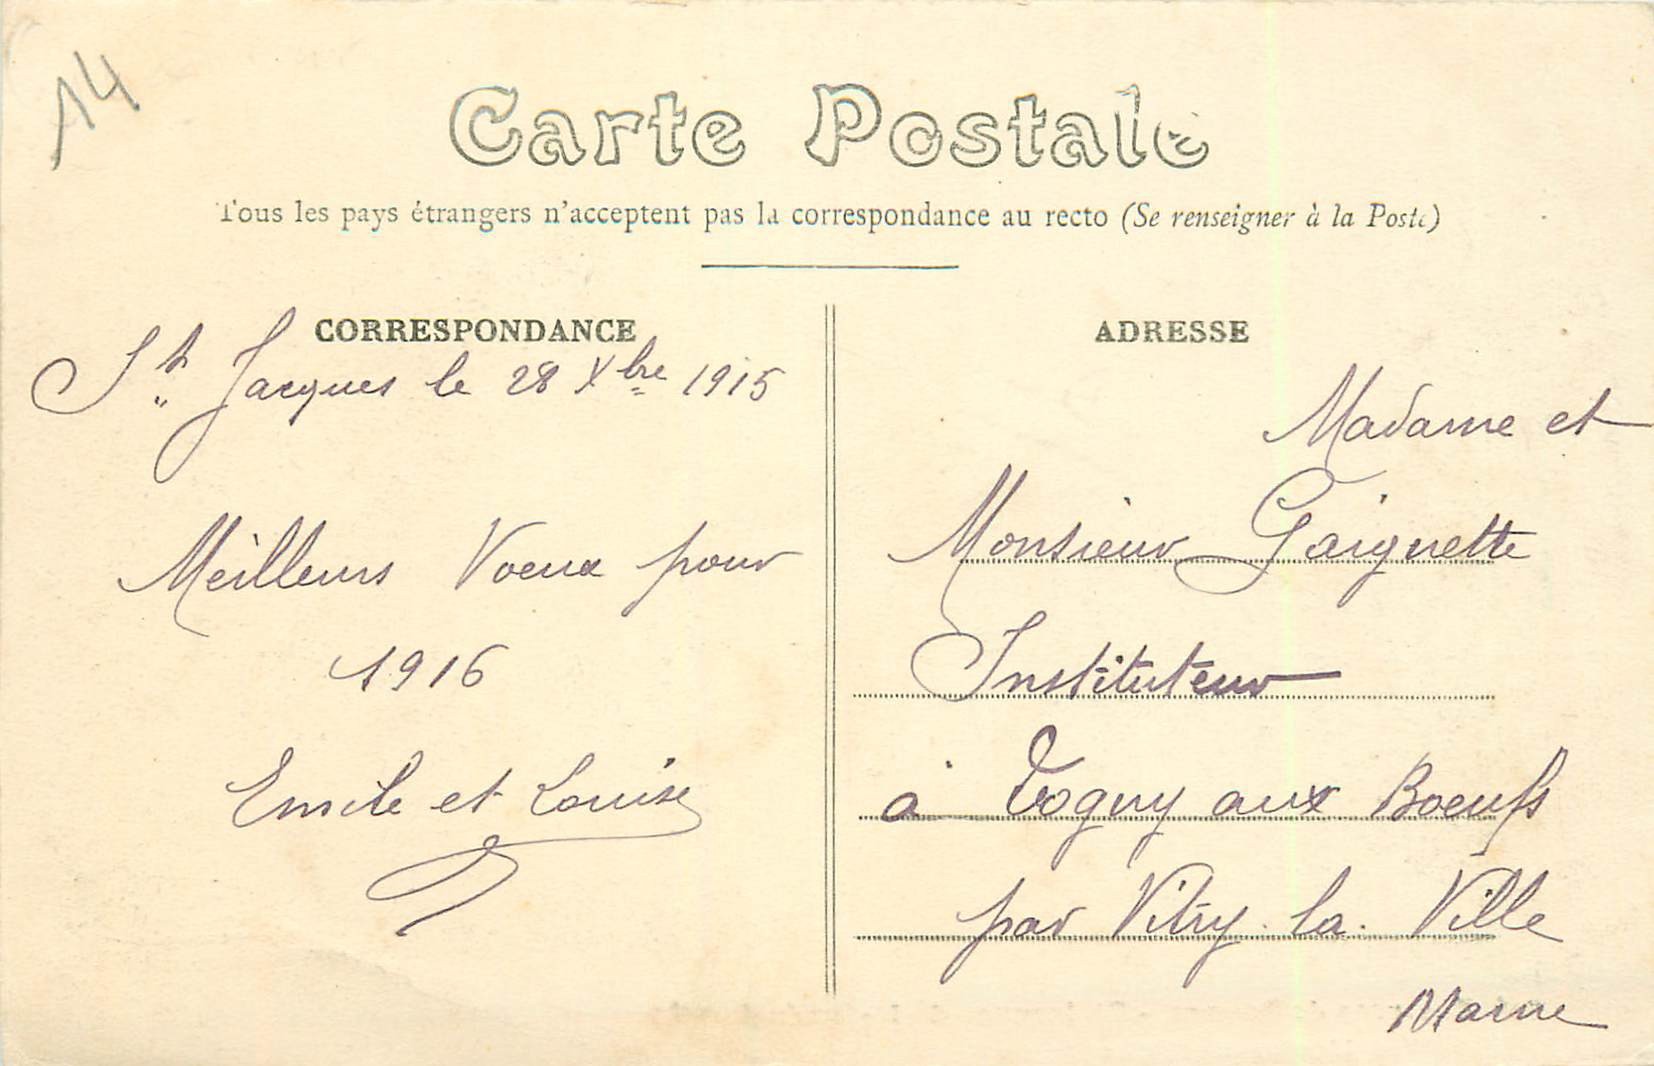 14
Carte Postale
Tous les pays étrangers n'acceptent pas la correspondance au recto (Se renseigner à la Poste)
CORRESPONDANCE
St Jacques le 28 Xbre 1915
Meilleurs Voeux pour
1916
Emile et Louise
ADRESSE
Madame et
Monsieur Gaignette
Instituteur
à Togny aux Boeufs
par Vitry-la-Ville
Marne